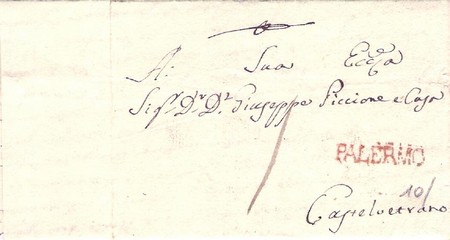 A: Sua Ecc.a
Sig.r D.r D.n Giuseppe Piccione e Caso
PALERMO
10/
Castelvetrano